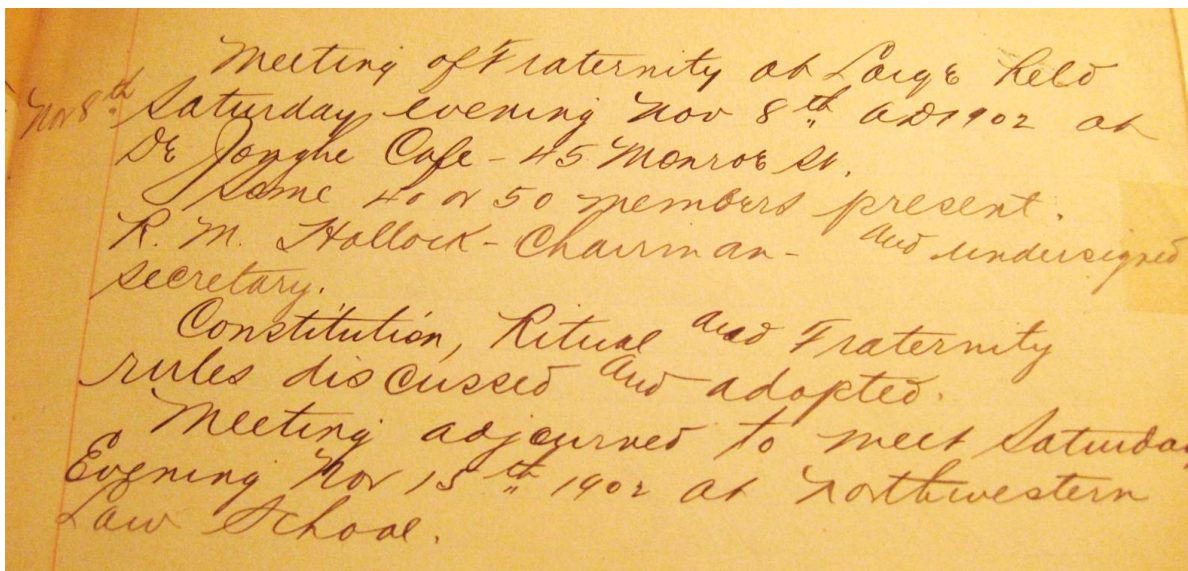 Meeting of Fraternity at Large held
Nov 8th Saturday evening Nov 8th AD 1902 at
De Jonghe Cafe - 45 Monroe St.
Some 40 or 50 members present.
R. M. Hollock - Chairman - and undersigned
secretary.
Constitution, Ritual and Fraternity
rules discussed and adopted.
Meeting adjourned to meet Saturday
Evening Nov 15th 1902 at Northwestern
Law School.